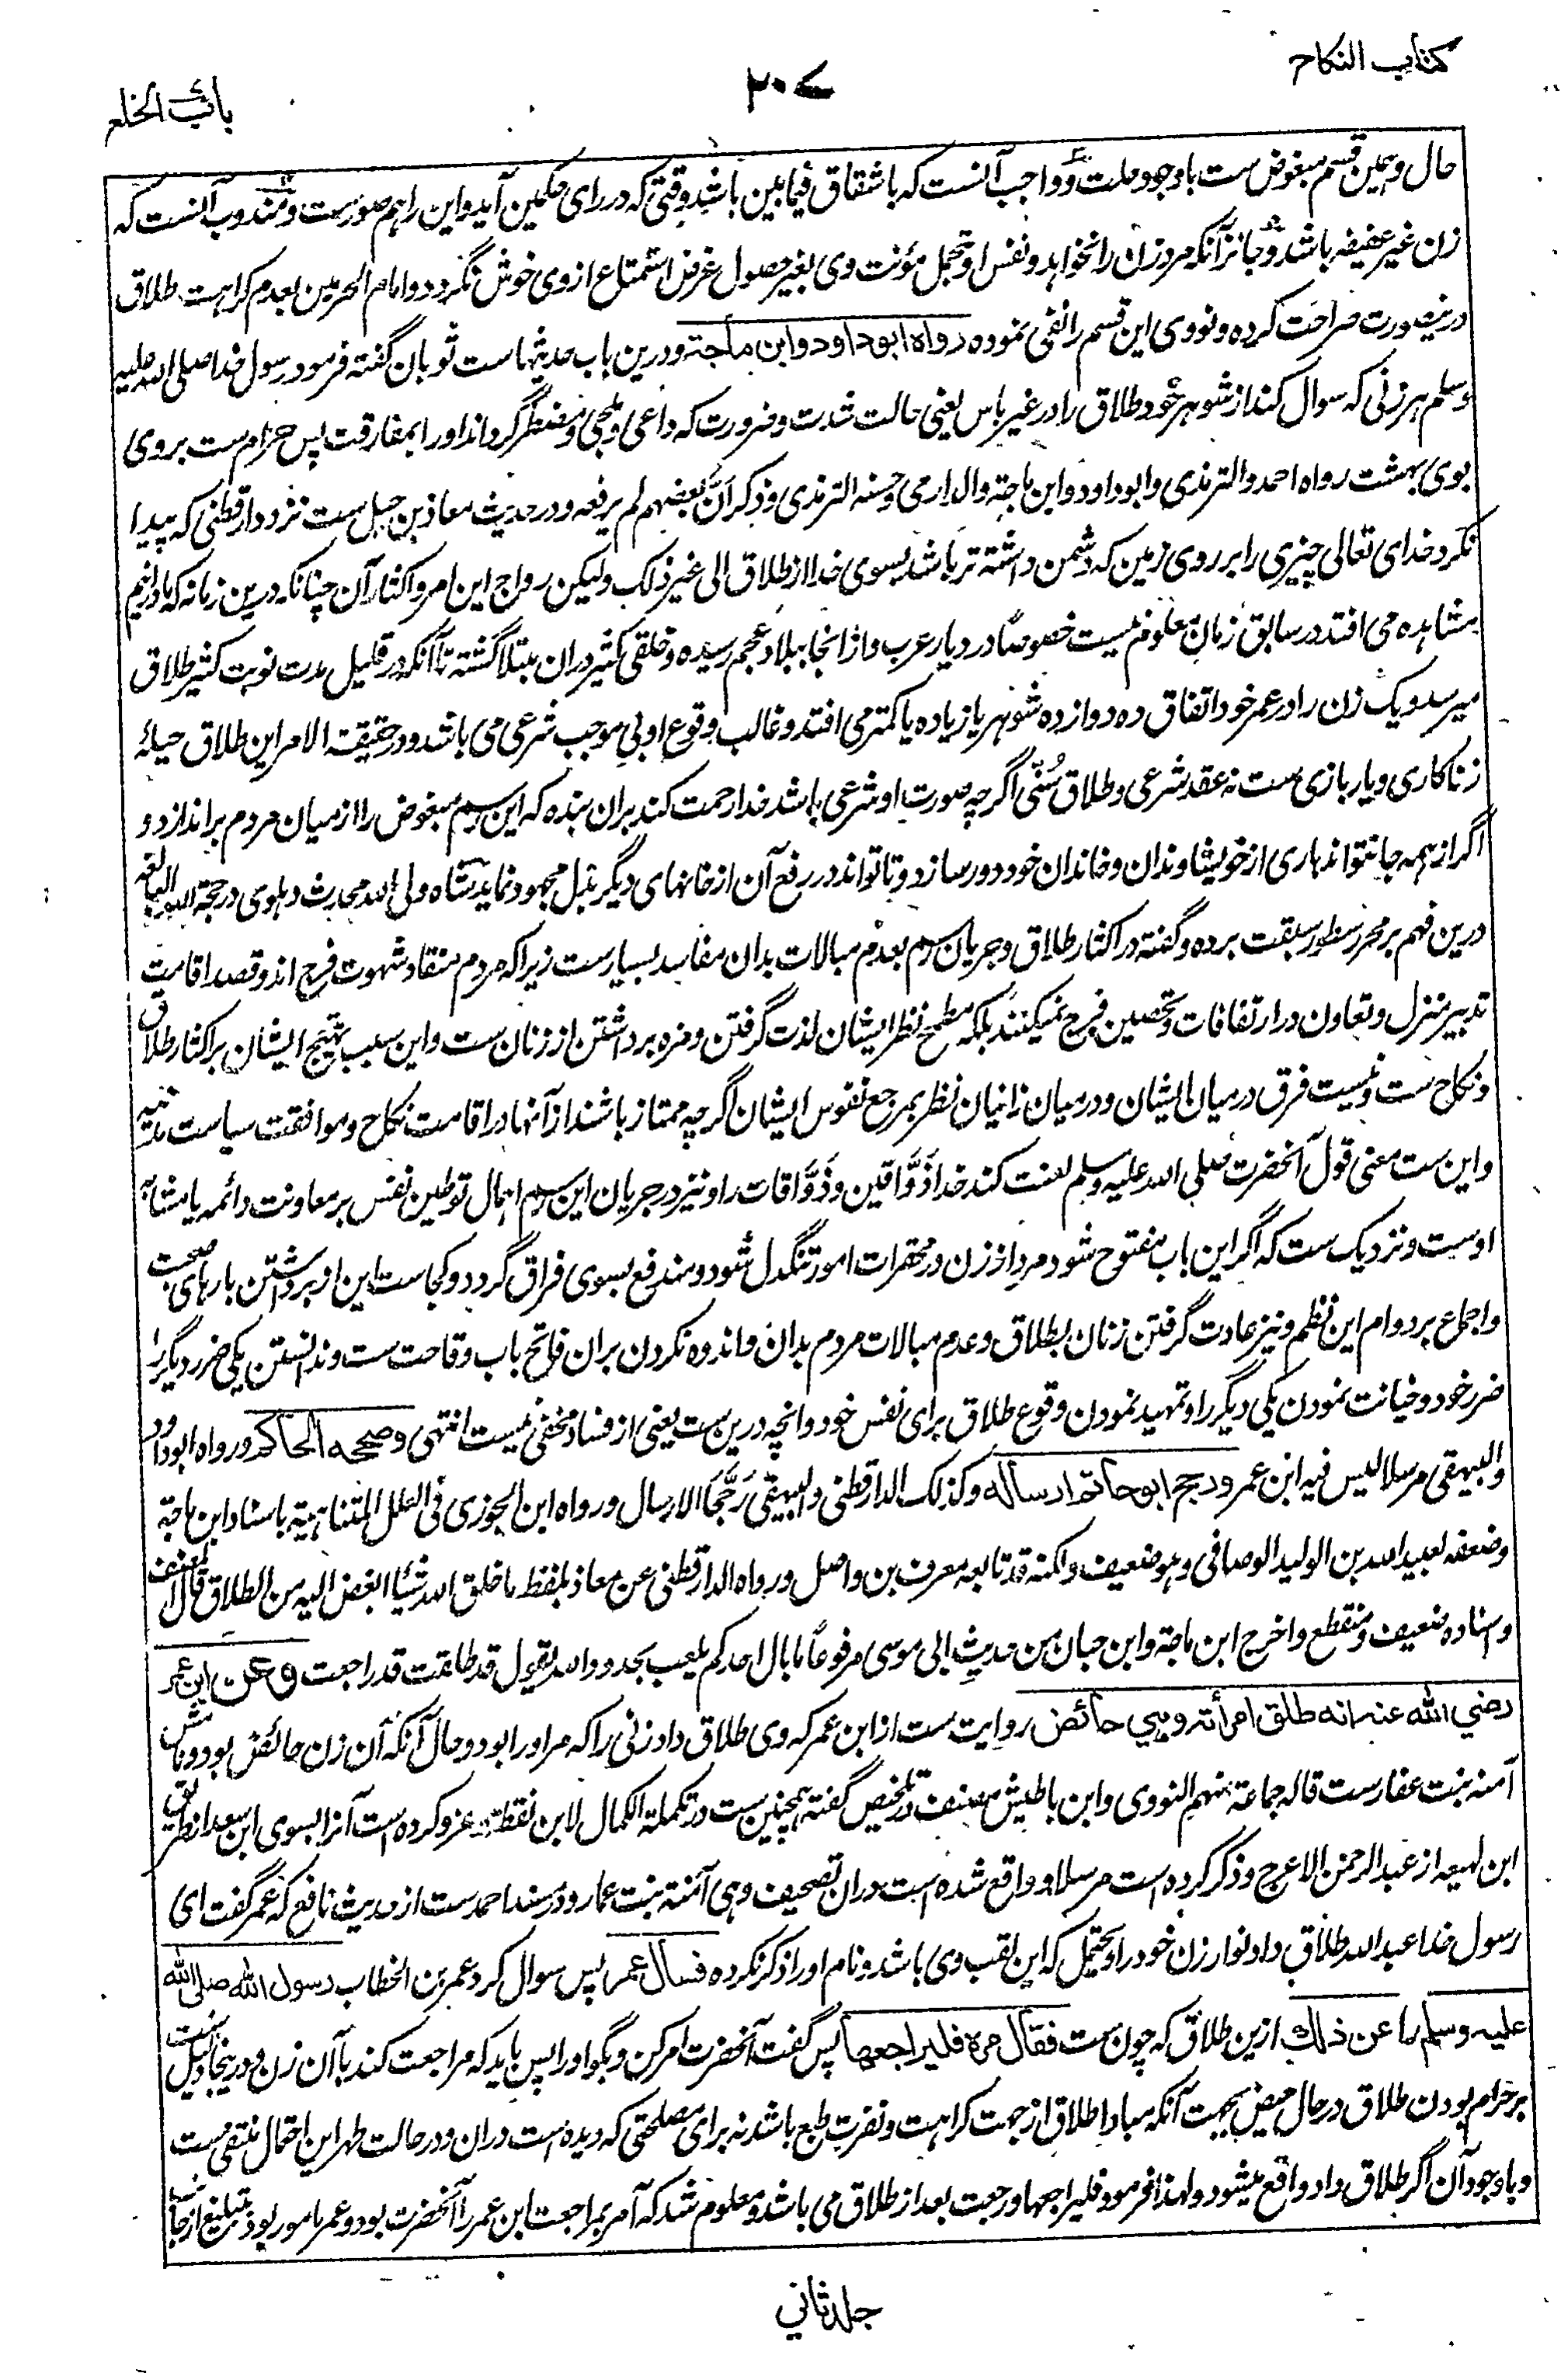 كتاب النكاح
٢٠٧
باب الخلع
حال و همین قسم مبغوض ست با وجود حلت و واجب آنست که با شقاق فیما بین باشد وقتی که در رای حکمین آید و این را هم صورست و مندوب آنست که
زن غیر عفیفه باشد و جائز آنکه مرد زن را نخواهد و نفس او تحمل مؤنت وی بغیر حصول غرض استمتاع از وی خوش نگردد و امام الحرمین بعدم کراهت طلاق
درینصورت صراحت کرده و نووی این قسم را نفی نموده رواه ابو داود و ابن ماجة و درین باب حدیثهاست ثوبان گفته فرمود رسول خدا صلی الله علیه
وسلم هر زنی که سوال کند از شوهر خود طلاق را در غیر باس یعنی حالت شدت و ضرورت که داعی و ملجی و مضطر گرداند او را بمفارقت پس حرام ست بروی
بوی بهشت رواه احمد والترمذی وابو داود وابن ماجة والدارمی وحسنه الترمذی وذکر أن بعضهم لم یرفعه و در حدیث معاذ بن جبل ست نزد دارقطنی که پیدا
نکرد خدای تعالی چیزی را بر روی زمین که دشمن داشته تر باشد بسوی خدا از طلاق الی غیر ذلک ولیکن رواج این امر و اکثار آن چنانکه درین زمانه که ما در انیم
مشاهده می افتد در سابق زمان معلوم نیست خصوصًا در دیار عرب و از انجا ببلاد عجم رسیده و خلقی کثیر دران مبتلا گشته تا آنکه در قلیل مدت نوبت کثیر طلاق
میرسد و یک زن را در عمر خود اتفاق ده دوازده شوهر یا زیاده یا کمتر می افتد و غالب وقوع او بی موجب شرعی می باشد و در حقیقت الامر این طلاق حیلهٔ
زناکاری و یار بازی ست نه عقد شرعی و طلاق سُنّی اگرچه صورت او شرعی باشد خدا رحمت کند بران بنده که این رسم مبغوض را از میان مردم براندازد و
اگر از همه جا نتواند باری از خویشاوندان و خاندان خود دور سازد و تا تواند در رفع آن از خانهای دیگر بذل مجهود نماید شاه ولی الله محدث دهلوی در حجة الله البالغه
درین فهم بر محرر سطور سبقت برده و گفته در اکثار طلاق و جریان رسم بعدم مبالات بدان مفاسد بسیارست زیرا که مردم منقاد شهوت فرج اند و قصد اقامت
تدبیر منزل و تعاون در ارتفاقات و تحصین فرج نمیکنند بلکه مطمح نظر ایشان لذت گرفتن و مزه برداشتن از زنان ست و این سبب تهییج ایشان بر اکثار طلاق
و نکاح ست و نیست فرق در میان ایشان و در میان زانیان نظر بمرجع نفوس ایشان اگرچه ممتاز باشند از آنها در اقامت نکاح و موافقت سیاست مدنیه
و این ست معنی قول آنحضرت صلی الله علیه وسلم لعنت کند خدا ذَوَّاقین و ذَوَّاقات را و نیز در جریان این رسم اهمال توطین نفس بر معاونت دائمه یا مشابه
اوست و نزدیک ست که اگر این باب مفتوح شود مرد از زن در محقرات امور تنگدل شود و مندفع بسوی فراق گردد و کجاست این از برداشتن بارهای صحبت
و اجماع بر دوام این نظم و نیز عادت گرفتن زنان بطلاق و عدم مبالات مردم بدان و اندوه نکردن بران فاتح باب وقاحت ست و ندانستن یکی ضرر دیگر را
ضرر خود و خیانت نمودن یکی دیگر را و تمهید نمودن وقوع طلاق برای نفس خود و انچه درین ست یعنی از فساد مخفی نیست انتهی وصححه الحاکم ورواه ابو داود
والبیهقی مرسلا لیس فیه ابن عمر ورجح ابو حاتم ارساله وکذلک الدارقطنی والبیهقی رَجَّحَا الارسال ورواه ابن الجوزی فی العلل المتناهیة باسناد ابن ماجة
وضعفه لعبید الله بن الولید الوصافی وهو ضعیف ولکنه قد تابعه معرف بن واصل ورواه الدارقطنی عن معاذ بلفظ ما خلق الله شیئا ابغض الیه من الطلاق قال المصنف
واسناده ضعیف ومنقطع واخرج ابن ماجة وابن حبان من حدیث ابی موسی مرفوعًا ما بال احدکم یلعب بحدود الله یقول قد طلقت قد راجعت وعن ابن عمر
رضي الله عنه انه طلق امرأته وهي حائض روایت ست از ابن عمر که وی طلاق داد زنی را که مر او را بود و حال آنکه آن زن حائض بود و نامش
آمنه بنت غفارست قاله جماعة منهم النووی وابن باطیش مصنف در تلخیص گفته همچنین ست در تکملة الکمال لابن نقطة و عزو کرده است آنرا بسوی ابن سعد از طریق
ابن لهیعه از عبد الرحمن الاعرج و ذکر کرده است مرسلا و واقع شده است دران تصحیف وهی آمنة بنت عمار و در مسند احمد ست از حدیث نافع که عمر گفت ای
رسول خدا عبد الله طلاق داد نوار زن خود را و یحتمل که این لقب وی باشد و نام او را ذکر نکرده فسأل عمر پس سوال کرد عمر بن الخطاب رسول الله صلى الله
عليه وسلم را عن ذلك ازین طلاق که چون ست فقال مره فليراجعها پس گفت آنحضرت امر کن و بگو او را پس باید که مراجعت کند با آن زن و درینجا دلیل ست
بر حرام بودن طلاق در حال حیض بجهت آنکه مبادا طلاق از جهت کراهت و نفرت طبع باشد نه برای مصلحتی که دیده است دران و در حالت طهر این احتمال منتفی ست
و با وجود آن اگر طلاق داد واقع میشود و لهذا فرمود فلیراجعها و رجعت بعد از طلاق می باشد و معلوم شد که آمر بمراجعت ابن عمر را آنحضرت بود و عمر مامور بود بتبلیغ از جانب
جلد ثاني